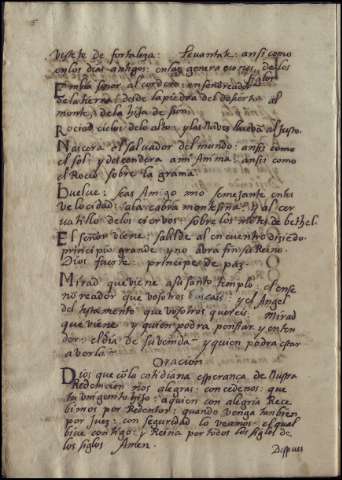 vistete de fortaleza: Levantate: ansi como
en los dias antigos: en las generaciones, de los
siglos
Embia señor al cordero: enseñoreador
de la tierra: desde la piedra del desierto al
monte, de la hija de sion.
Rociad cielos de lo alto, y las nuves lluevã al justo.
Nacera el salvador del mundo: ansi como
el sol, y descendera a mi Anima: ansi como
el Rocio sobre la grama.
Buelve: seas Amigo mio semejante en la
velocidad: ala cabra montesina: y al cer
vatillo de los ciervos sobre los mõtes de bethel.
El señor viene: salilde al encuentro diziẽdo
principio grande y no abra fin su Reino.
Dios fuerte: principe de paz.
Mirad que viene a su santo templo, el ense
noreador que vosotros buscais y el Angel
del testamento que vosotros quereis. Mirad
que viene y quien podra pensar y enten
der: el dia de su venida y quien podra estar
a verlo.
Oracion
Dios que cõ la cotidiana esperança de nuestra
Redemcion nos alegras: concedenos: que
tu unigenito hijo: a quien con alegria Rece
bimos por Redentor: quando venga tanbien
por juez: con seguridad lo veamos: el qual
bive contigo: y Reina por todos los siglos de
los siglos Amen.
Despues